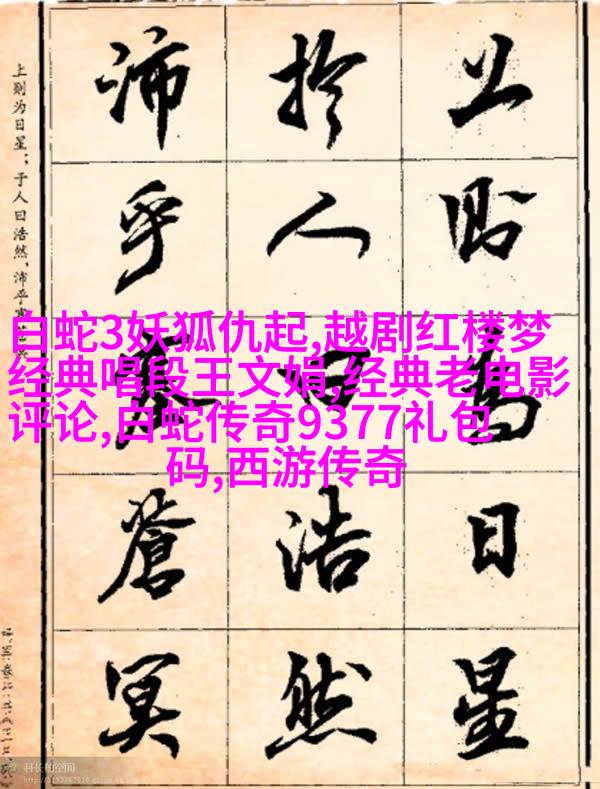 上則為日星
於人曰浩然
沛乎塞蒼冥
上则为日星；于人曰浩然，沛乎
白蛇3妖狐仇起,越剧红楼梦
经典唱段王文娟,经典老电影
评论,白蛇传奇9377礼包
码,西游传奇
科长的空间